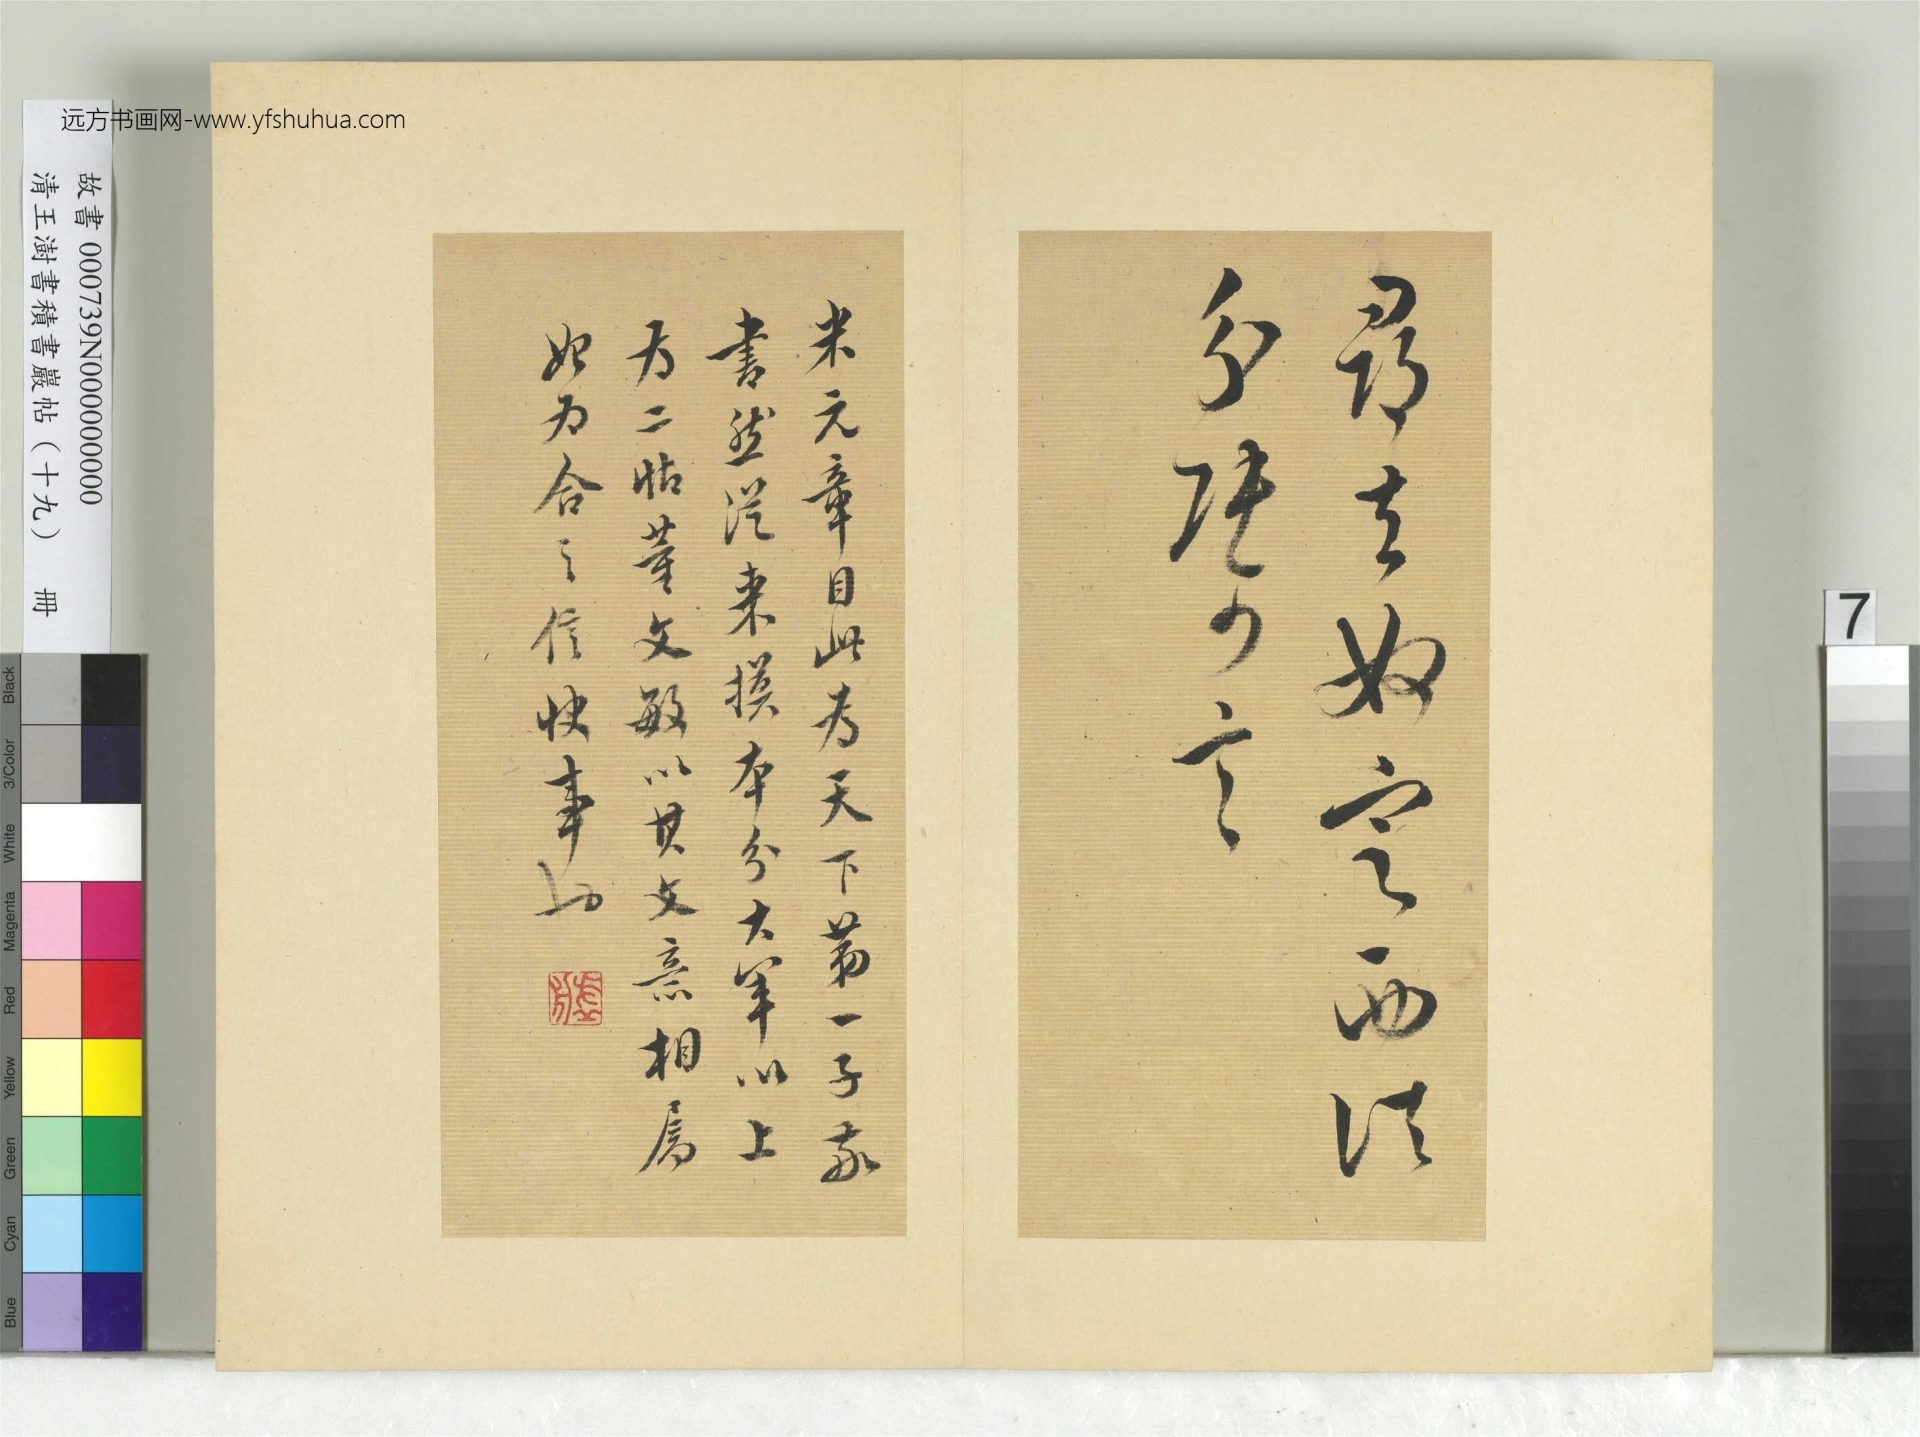 尋去奴定西諸
分張少言
米元章目此為天下第一子敬
書然從來摸本分大軍以上
為二帖董文敏以其文意相屬
始為合之信快事
远方书画网-www.yfshuhua.com
故書 000739N000000000
清王澍書積書巖帖（十九） 冊
7
Black
3/Color
White
Magenta
Red
Yellow
Green
Cyan
Blue